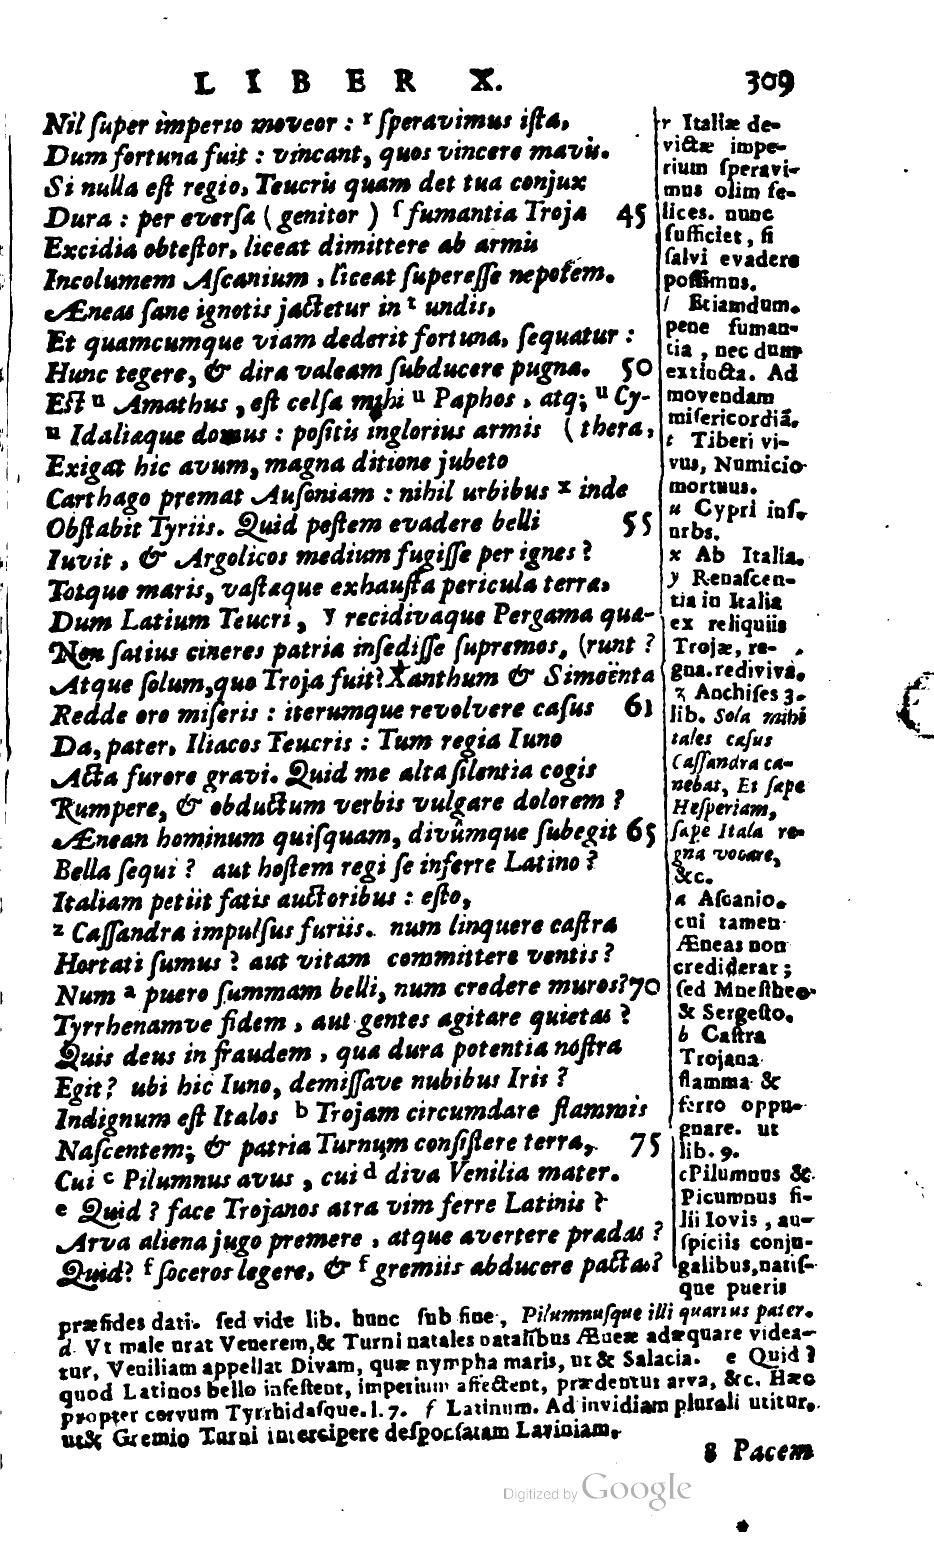 LIBER X. 309
Nil ſuper imperio moveor : r ſperavimus iſta,
Dum fortuna fuit : vincant, quos vincere mavis.
Si nulla eſt regio, Teucris quam det tua conjux
Dura : per everſa ( genitor ) ſ fumantia Troja 45
Excidia obteſtor, liceat dimittere ab armis
Incolumem Aſcanium, liceat ſupereſſe nepotem.
Æneas ſane ignotis jactetur in t undis,
Et quamcumque viam dederit fortuna, ſequatur :
Hunc tegere, & dira valeam ſubducere pugna. 50
Eſt u Amathus, eſt celſa mihi u Paphos, atq; u Cy-
u Idaliaque domus : poſitis inglorius armis ( thera,
Exigat hic ævum, magna ditione jubeto
Carthago premat Auſoniam : nihil urbibus x inde
Obſtabit Tyriis. Quid peſtem evadere belli 55
Iuvit, & Argolicos medium fugiſſe per ignes ?
Totque maris, vaſtæque exhauſta pericula terra,
Dum Latium Teucri, y recidivaque Pergama quæ-
Non ſatius cineres patria inſediſſe ſupremos, (runt ?
Atque ſolum, quo Troja fuit? Xanthum & Simoënta
Redde oro miſeris : iterumque revolvere caſus 61
Da, pater, Iliacos Teucris : Tum regia Iuno
Acta furore gravi. Quid me alta ſilentia cogis
Rumpere, & obductum verbis vulgare dolorem ?
Ænean hominum quiſquam, divûmque ſubegit 65
Bella ſequi ? aut hoſtem regi ſe inferre Latino ?
Italiam petiit fatis auctoribus : eſto,
z Caſſandra impulſus furiis. num linquere caſtra
Hortati ſumus ? aut vitam committere ventis ?
Num a puero ſummam belli, num credere muros? 70
Tyrrhenamve fidem, aut gentes agitare quietas ?
Quis deus in fraudem, qua dura potentia noſtra
Egit ? ubi hic Iuno, demiſſave nubibus Iris ?
Indignum eſt Italos b Trojam circumdare flammis
Naſcentem; & patria Turnum conſiſtere terra, 75
Cui c Pilumnus avus, cui d diva Venilia mater.
e Quid ? face Trojanos atra vim ferre Latinis ?
Arva aliena jugo premere, atque avertere prædas ?
Quid? f ſoceros legere, & f gremiis abducere pactas?
r Italiæ de-
victæ impe-
rium ſperavi-
mus olim fe-
lices. nunc
ſufficiet, ſi
ſalvi evadere
poſſimus.
ſ Etiamdum.
pene fuman-
tia, nec dum
extincta. Ad
movendam
miſericordiã.
t Tiberi vi-
vus, Numicio
mortuus.
u Cypri inſ.
urbs.
x Ab Italia.
y Renaſcen-
tia in Italia
ex reliquiis
Trojæ, re-
gna rediviva.
z Anchiſes 3.
lib. Sola mihi
tales caſus
Caſſandra ca-
nebat, Et ſæpe
Heſperiam,
ſæpe Itala re-
gna vocare,
&c.
a Aſcanio.
cui tamen
Æneas non
crediderat ;
ſed Mneſtheo
& Sergeſto.
b Caſtra
Trojana
flamma &
ferro oppu-
gnare. ut
lib. 9.
c Pilumnus &
Picumnus fi-
lii Iovis, au-
ſpiciis conju-
galibus, natiſ-
que pueris
præſides dati. ſed vide lib. hunc ſub fine, Pilumnuſque illi quartus pater.
d Vt male urat Venerem, & Turni natales natalibus Æneæ adæquare videa-
tur, Veniliam appellat Divam, quæ nympha maris, ut & Salacia. e Quid ?
quod Latinos bello infeſtent, imperium affectent, prædentur arva, &c. Hæc
propter cervum Tyrrhidaſque. l. 7. f Latinum. Ad invidiam plurali utitur,
ut & Gremio Turni intercipere deſponſatam Laviniam.
8 Pacem
Digitized by Google